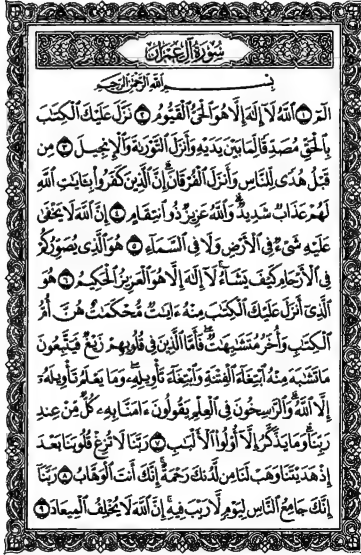 سُورَةُ آلِ عِمْرَان
بِسْمِ اللَّهِ الرَّحْمَٰنِ الرَّحِيمِ
الٓمٓ ۝١ ٱللَّهُ لَآ إِلَٰهَ إِلَّا هُوَ ٱلْحَىُّ ٱلْقَيُّومُ ۝٢ نَزَّلَ عَلَيْكَ ٱلْكِتَٰبَ
بِٱلْحَقِّ مُصَدِّقًا لِّمَا بَيْنَ يَدَيْهِ وَأَنزَلَ ٱلتَّوْرَىٰةَ وَٱلْإِنجِيلَ ۝٣ مِن
قَبْلُ هُدًى لِّلنَّاسِ وَأَنزَلَ ٱلْفُرْقَانَ ۗ إِنَّ ٱلَّذِينَ كَفَرُوا۟ بِـَٔايَٰتِ ٱللَّهِ
لَهُمْ عَذَابٌ شَدِيدٌ ۗ وَٱللَّهُ عَزِيزٌ ذُو ٱنتِقَامٍ ۝٤ إِنَّ ٱللَّهَ لَا يَخْفَىٰ
عَلَيْهِ شَىْءٌ فِى ٱلْأَرْضِ وَلَا فِى ٱلسَّمَآءِ ۝٥ هُوَ ٱلَّذِى يُصَوِّرُكُمْ
فِى ٱلْأَرْحَامِ كَيْفَ يَشَآءُ ۚ لَآ إِلَٰهَ إِلَّا هُوَ ٱلْعَزِيزُ ٱلْحَكِيمُ ۝٦ هُوَ
ٱلَّذِىٓ أَنزَلَ عَلَيْكَ ٱلْكِتَٰبَ مِنْهُ ءَايَٰتٌ مُّحْكَمَٰتٌ هُنَّ أُمُّ
ٱلْكِتَٰبِ وَأُخَرُ مُتَشَٰبِهَٰتٌ ۖ فَأَمَّا ٱلَّذِينَ فِى قُلُوبِهِمْ زَيْغٌ فَيَتَّبِعُونَ
مَا تَشَٰبَهَ مِنْهُ ٱبْتِغَآءَ ٱلْفِتْنَةِ وَٱبْتِغَآءَ تَأْوِيلِهِۦ ۗ وَمَا يَعْلَمُ تَأْوِيلَهُۥٓ
إِلَّا ٱللَّهُ ۗ وَٱلرَّٰسِخُونَ فِى ٱلْعِلْمِ يَقُولُونَ ءَامَنَّا بِهِۦ كُلٌّ مِّنْ عِندِ
رَبِّنَا ۗ وَمَا يَذَّكَّرُ إِلَّآ أُو۟لُوا۟ ٱلْأَلْبَٰبِ ۝٧ رَبَّنَا لَا تُزِغْ قُلُوبَنَا بَعْدَ
إِذْ هَدَيْتَنَا وَهَبْ لَنَا مِن لَّدُنكَ رَحْمَةً ۚ إِنَّكَ أَنتَ ٱلْوَهَّابُ ۝٨ رَبَّنَآ
إِنَّكَ جَامِعُ ٱلنَّاسِ لِيَوْمٍ لَّا رَيْبَ فِيهِ ۚ إِنَّ ٱللَّهَ لَا يُخْلِفُ ٱلْمِيعَادَ ۝٩